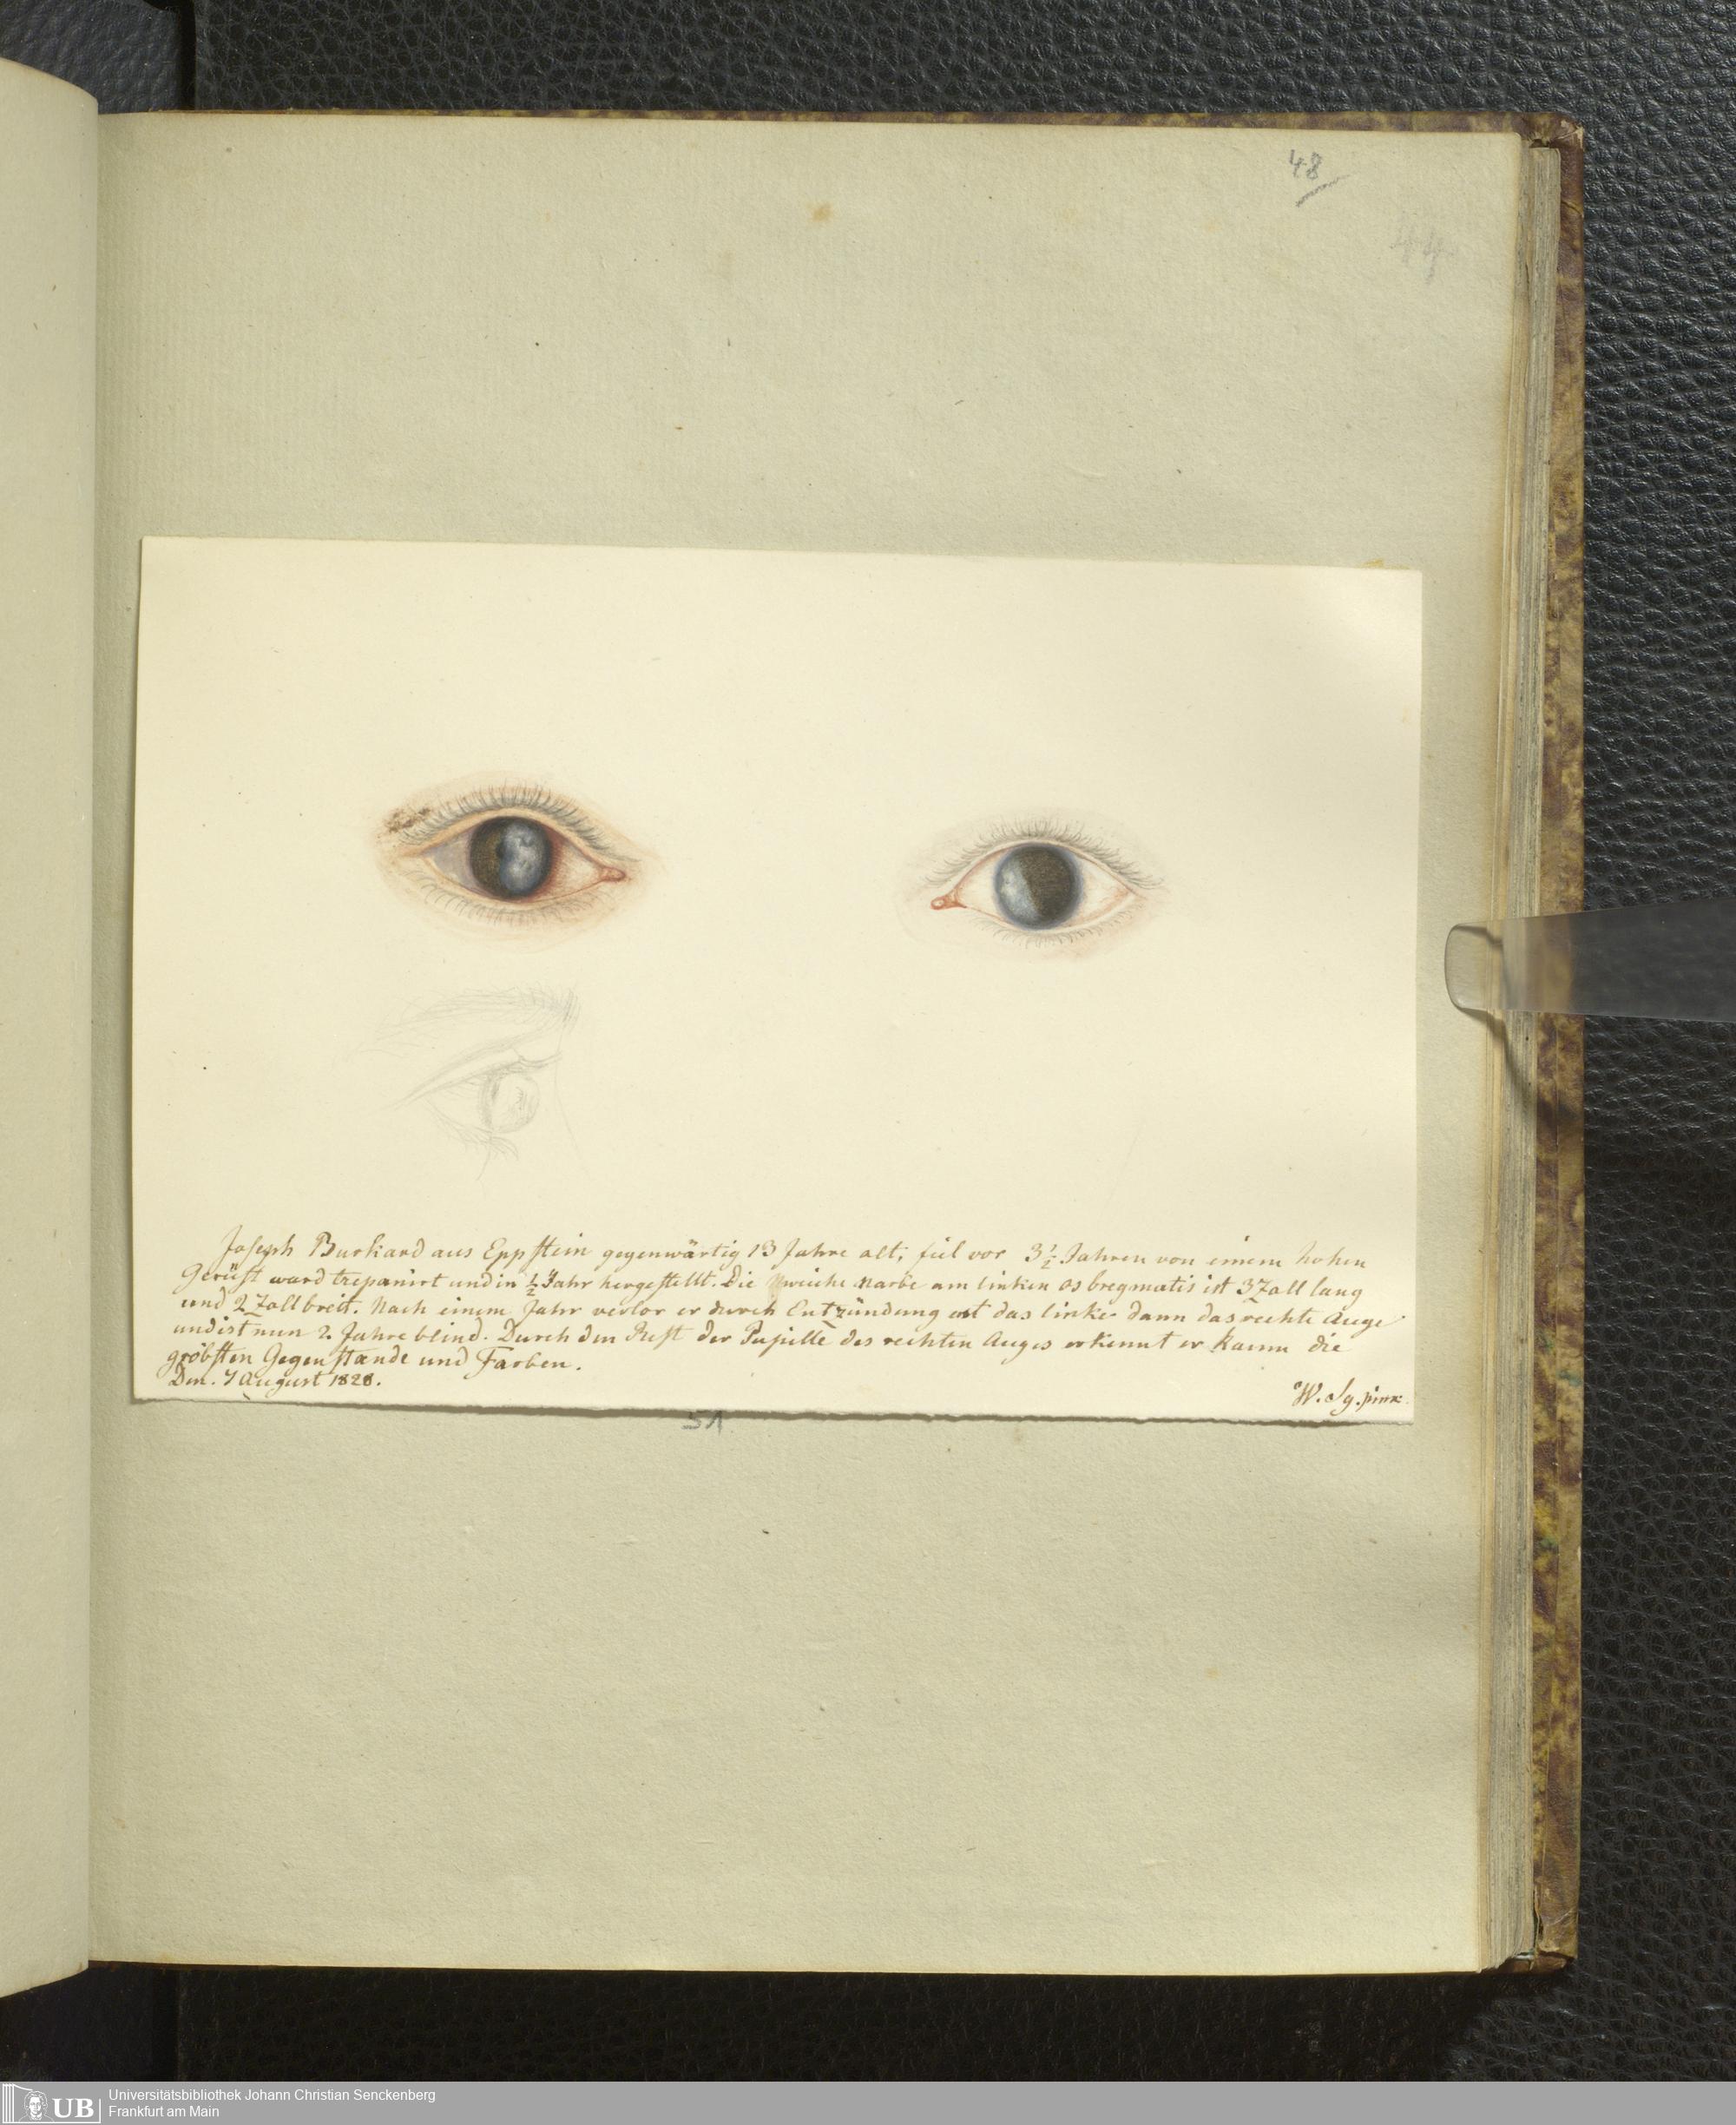 48
44
Joseph Burkard aus Eppstein gegenwärtig 13 Jahre alt; fiel vor 3½ Jahren von einem hohen
Gerüst ward trepanirt und in ½ Jahr hergestellt. Die weiche Narbe am linken os bregmatis ist 3 Zoll lang
und 2 Zoll breit. Nach einem Jahr verlor er durch Entzündung erst das linke dann das rechte Auge
und ist nun 2. Jahre blind. Durch den Rest der Pupille des rechten Auges erkennt er kaum die
gröbsten Gegenstände und Farben.
Den. 7 August 1828.
W. Sg. pinx.
51
UB Universitätsbibliothek Johann Christian Senckenberg
Frankfurt am Main